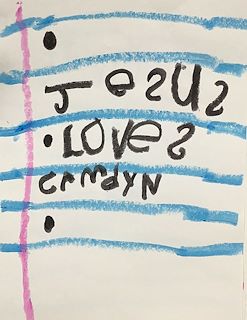 •
JesUs
• LOVes
CAmdYN
•